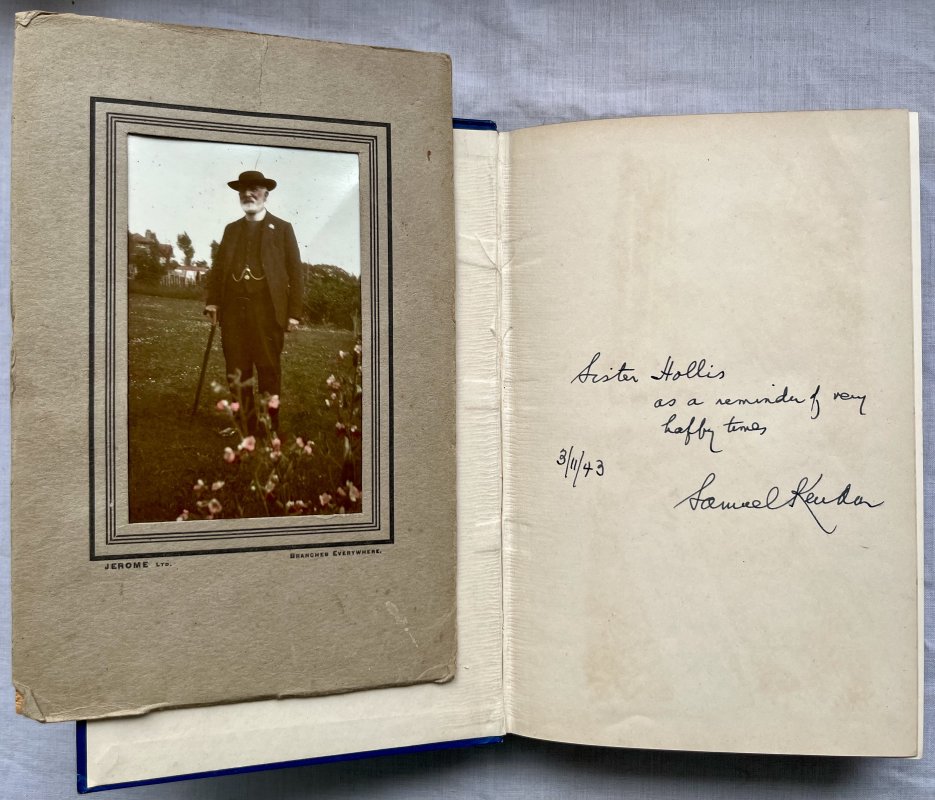 JEROME LTD.
BRANCHES EVERYWHERE.
Sister Hollis
as a reminder of very
happy times
3/11/43
Samuel Kendon